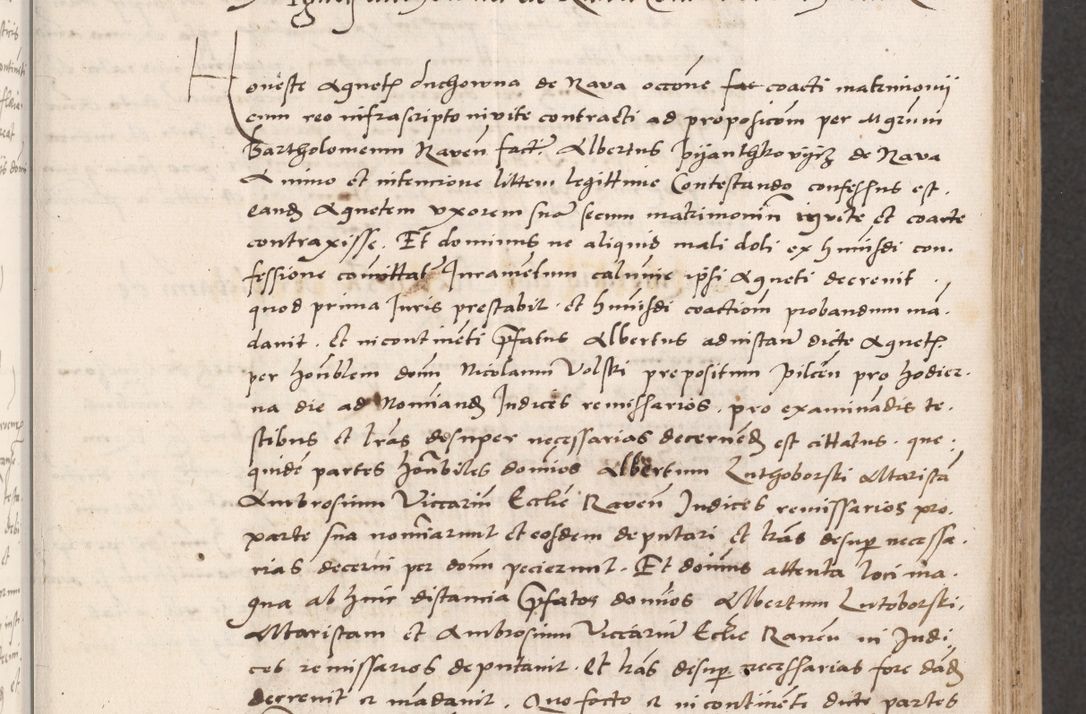 Honeste Agnet duchowna de Rava occone fae coacti matrimonij
cum reo infrascripto invite contracti ad proposicom per Mgrum
Bartholomeum Raven fact Albertus
de Rava
Animo et intencione littem legittime Contestando confessus est.
eand Agnetem vxorem sua secum matrimoniu invite et coacte
contraxisse. Et dominus ne aliquid mali doli ex hmoi con-
fessione comittat Juramentum calumie ipsi Agneti decrevit
quod prima Juris prestabit. et hmoi coactiom probandum ma-
davit. Et incontineti pfatus Albertus ad instan dicte Agnet
per honblem dom Nicolaum Volski prepositum pilcen pro hodier-
na die ad Nominand Judices remissarios. pro examinadis te-
stibus et lras desuper necessarias decernend est cittatus. que-
quide partes honbiles dominos Albertum Luthoborski Altarista
Ambrosium Viccarium Ecclie Raven Judices remissarios pro-
parte sua nominarunt et eosdem deputari et lras desup necessa-
rias decerni per dom pecierunt. Et dominus attenta loci ma-
gna ab hinc distancia pfatos dominos Albertum Lutoborski,
Altaristam et Ambrosium Viccariu Ecclie Raven in Judi-
ces remissarios deputavit. Et lras desup necessarias fore dad
decrevit et madavit. Quo facto et in continenti dicte partes